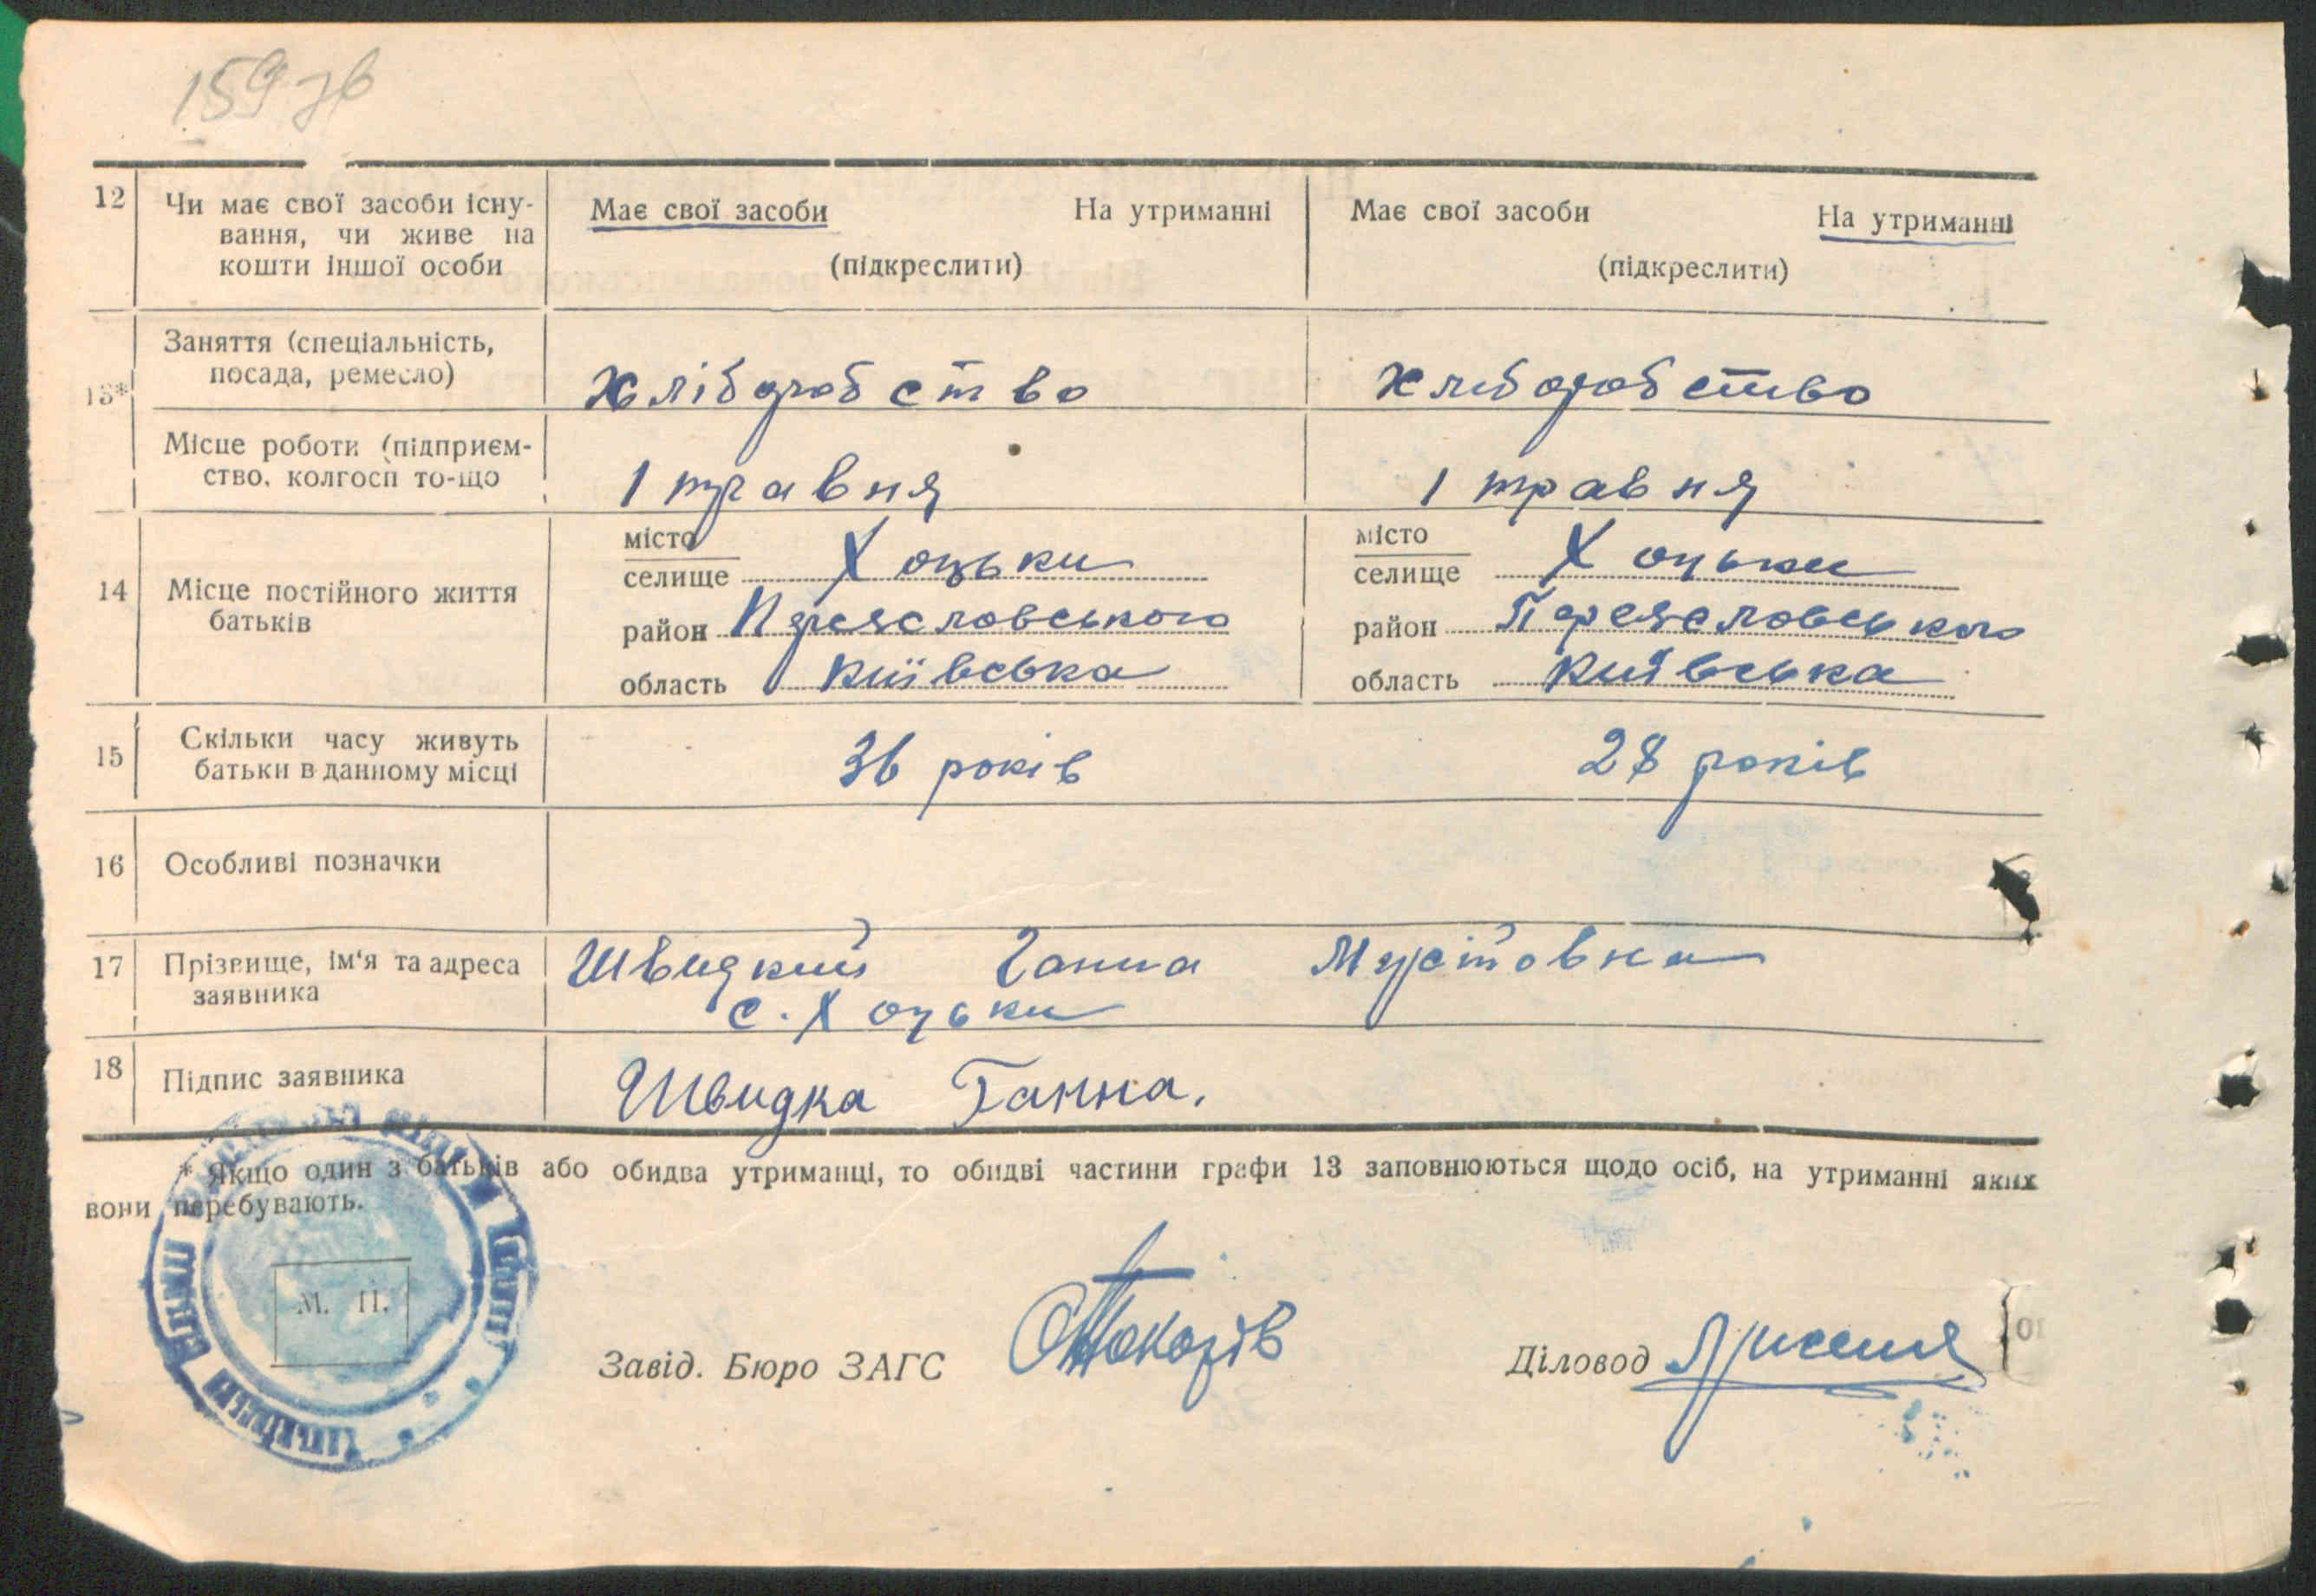 159 зв
12 Чи має свої засоби існу- Має свої засоби На утриманні Має свої засоби На утриманні
вання, чи живе на
кошти іншої особи (підкреслити) (підкреслити)
13* Заняття (спеціальність,
посада, ремесло) хліборобство хлиборобство
Місце роботи (підприєм-
ство, колгосп то-що 1 травня 1 травня
місто місто
селище Хоцьки селище Хоцьки
14 Місце постійного життя
батьків район Переяславського район Переяславського
область київська область київська
15 Скільки часу живуть
батьки в данному місці 36 років 28 років
16 Особливі позначки
17 Прізвище, ім'я та адреса Швидкий Ганна
заявника с. Хоцьки
18 Підпис заявника Швидка Ганна.
* Якщо один з батьків або обидва утриманці, то обидві частини графи 13 заповнюються щодо осіб, на утриманні яких
вони перебувають.
М. П.
Завід. Бюро ЗАГС Діловод